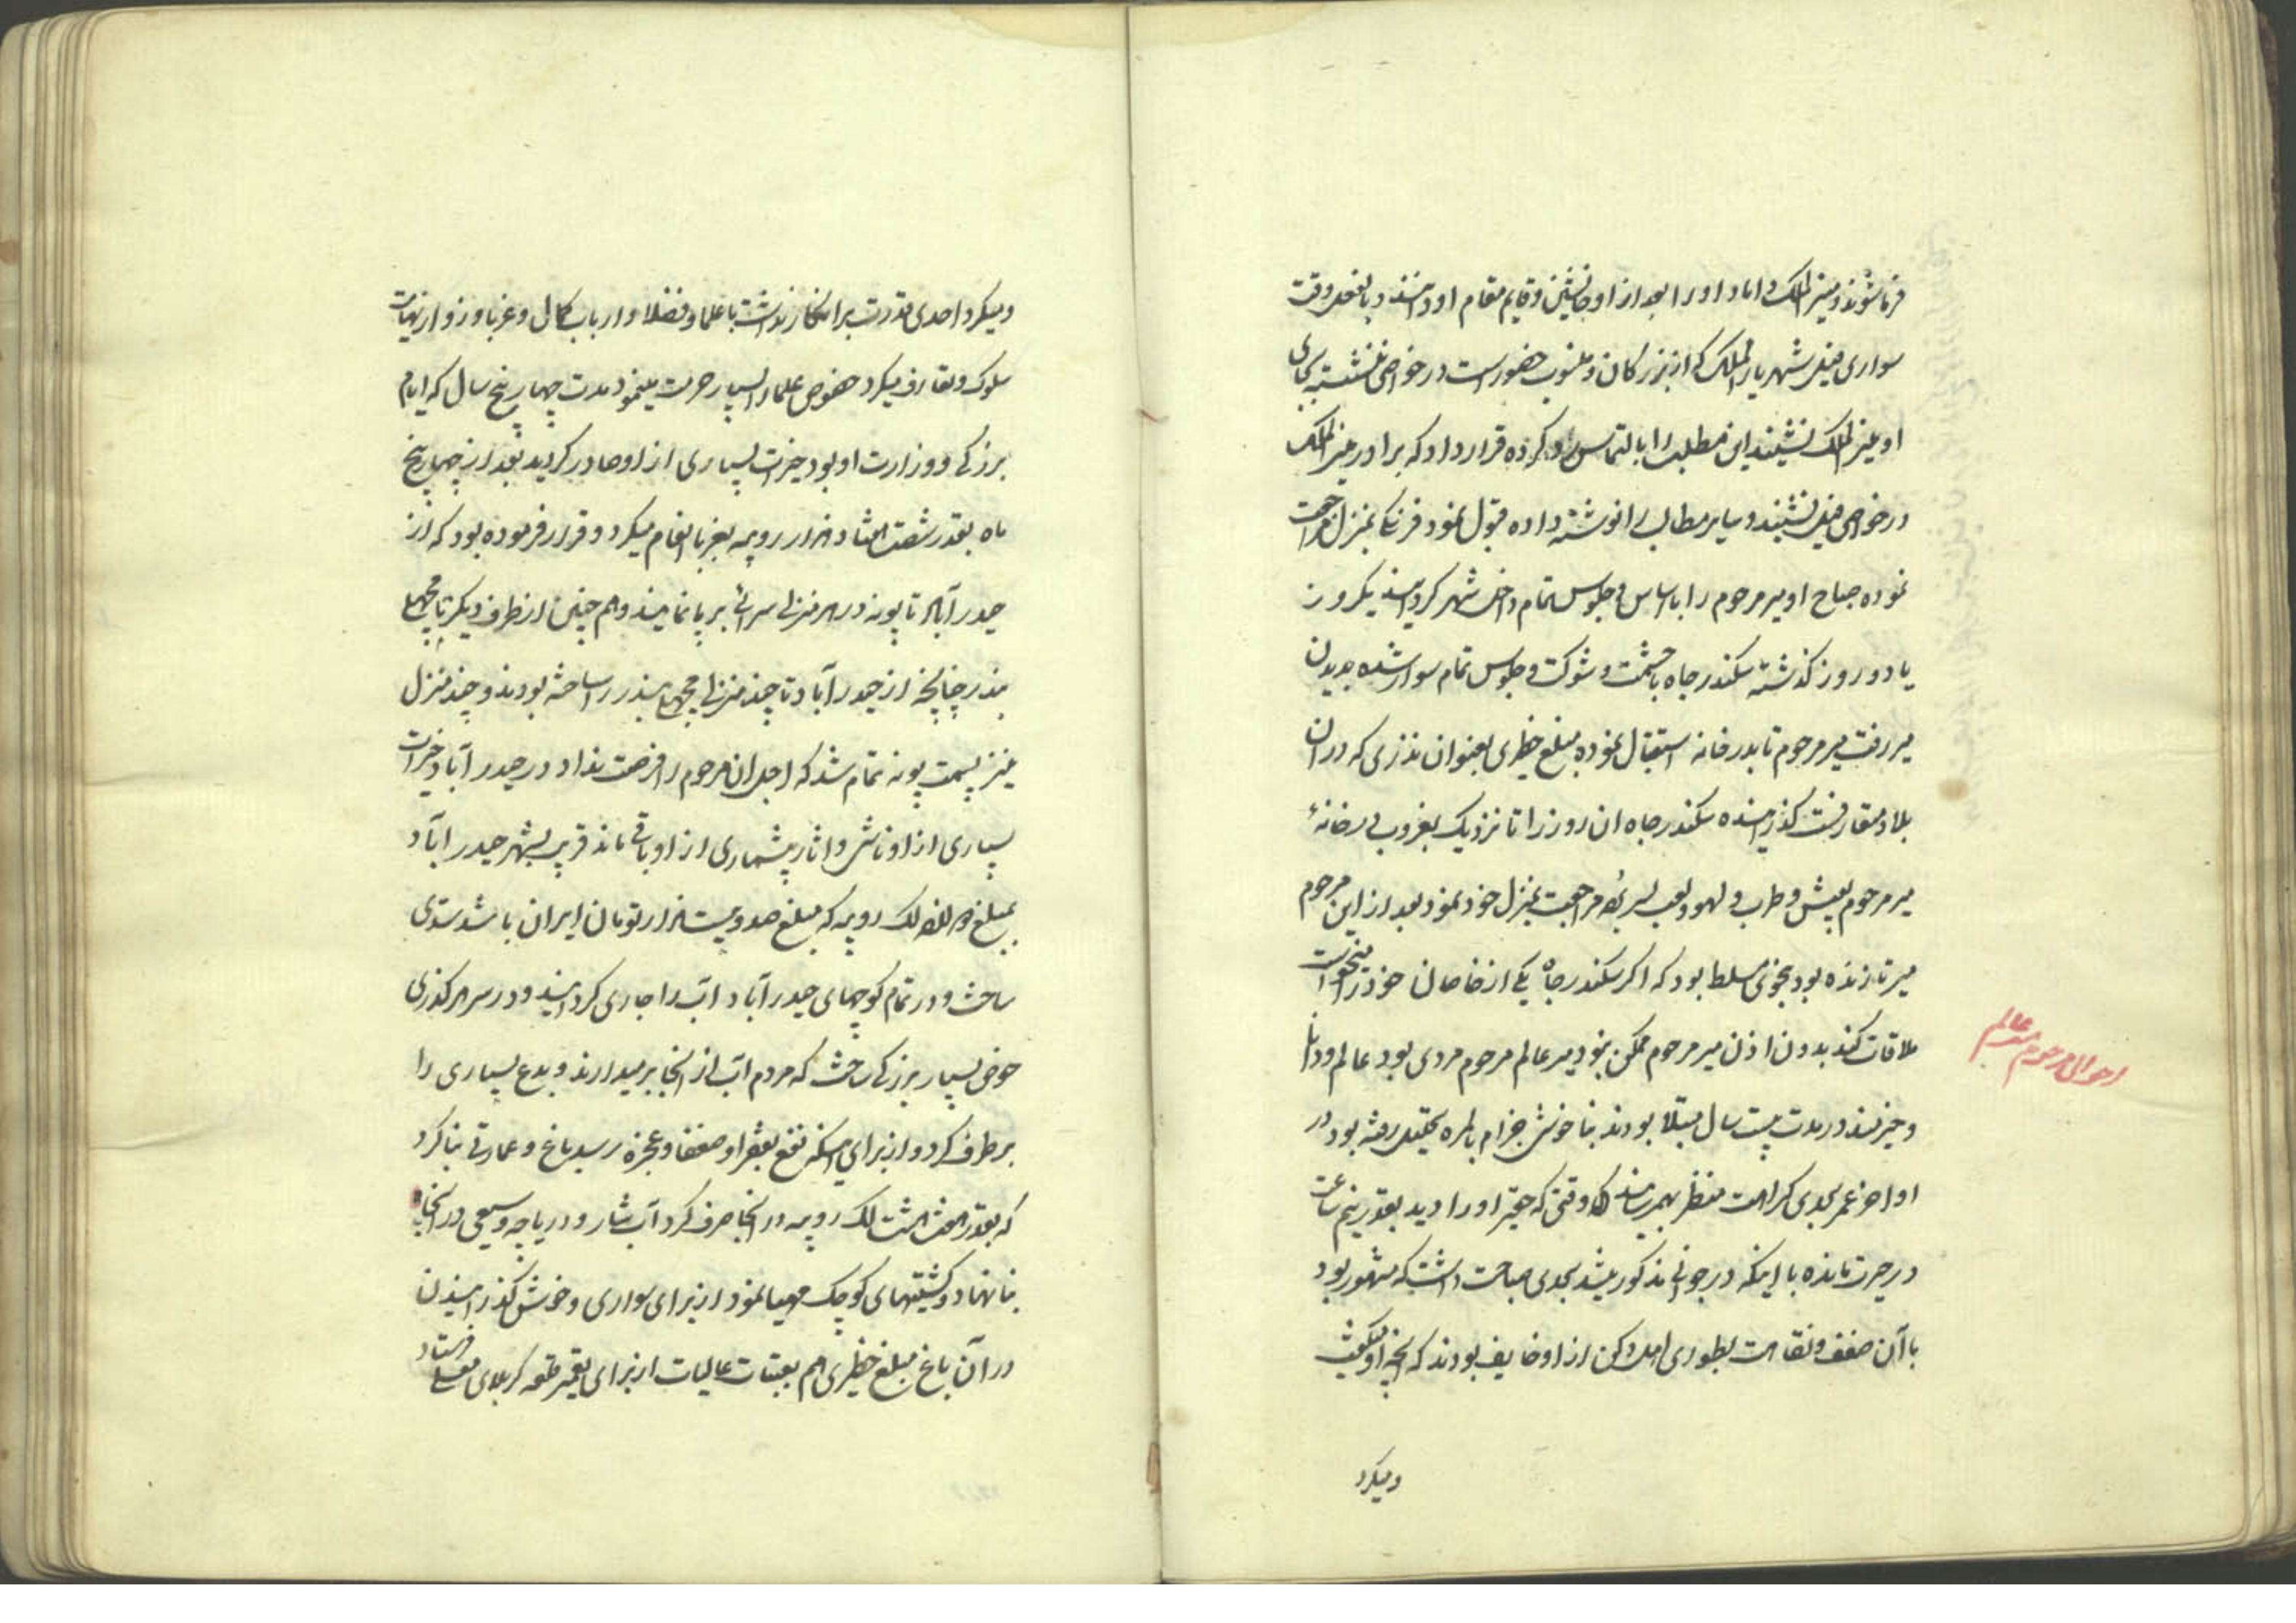 فرما شوند و منیر الملک داماد او را بعد از او جانشین و قایم مقام او دانسته و بالفعل وقت
سواری فیل شهریار الملک که از بزرگان و منسوب حضور است در خواصی نشسته بجای
او منیر الملک نشیند این مطلب را بالتماس رد کرده قرار داد که برادر منیر الملک
در خواصی فیل نشیند و سایر مطالب را نوشته داده قبول نمود فرنگی بمنزل مراجعت
نموده صباح او میر مرحوم را با اساس و جلوس تمام داخل شهر کردانیدند یکروز
یا دو روز گذشته سکندر جاه با حشمت و شوکت و جلوس تمام سوار شده بدیدن
میر رفت میر مرحوم تا بدر خانه استقبال نموده مبلغ خطیری بعنوان نذری که در ان
بلاد متعارفست گذرانیده سکندر جاه ان روز را تا نزدیک بغروب در خانهٔ
میر مرحوم بعیش و طرب و لهو و لعب بسر برده مراجعت بمنزل خود نمود بعد از این مرحوم
میر تا زنده بود بنحوی مسلط بود که اگر سکندر جاه یکی از خاصان خود را میخواست
ملاقات کند بدون اذن میر مرحوم ممکن نبود میر عالم مرحوم مردی بود عالم و دانا
احوال مرحوم میر عالم
و خیرمند در مدت بیست سال مبتلا بودند بناخوشی جذام بالمره تحلیل رفته بود در
اواخر عمر بحدی کراهت منظر بهم رسانید که وقتی که حقیر او را دید بقدر نیم ساعت
در حیرت مانده با اینکه در جوانی مذکور میشد بحدی صباحت داشت که مشهور بود
با آن ضعف و نقاهت بطوری اهل دکن از او خایف بودند که انچه او میگفت
و میکرد
و میکرد احدی قدرت بر انکار نداشت با علما و فضلا و ارباب کمال و غربا و زوار نهایت
سلوک و تعارف میکرد خصوص علما را بسیار حرمت مینمود مدت چهار پنج سال که ایام
بزرگی و وزارت او بود خیرات بسیاری از او صادر گردید بعد از چهار پنج
ماه بقدر شصت هشتاد هزار روپیه بغربا انعام میکرد و قرار فرموده بود که از
حیدرآباد تا پونه در هر منزلی سرائی بر پا نمایند و هم چنین از طرف دیگر تا مچهلی
بندر چنانچه از حیدرآباد تا چند منزلی مچهلی بندر را ساخته بودند و چند منزل
نیز بسمت پونه تمام شد که اجل ان مرحوم را فرصت نداد در حیدرآباد خیرات
بسیاری از او ناشی و اثار بیشماری از او باقی ماند قریب بشهر حیدرآباد
بمبلغ لک روپیه که مبلغ صد و بیست هزار تومان ایران باشد سدی
ساخت و در تمام کوچهای حیدرآباد آب را جاری کردانید و در سر هر گذری
حوض بسیار بزرگی ساخت که مردم آب از انجا بر میدارند و بدع بسیاری را
بر طرف کرد و از برای اینکه نفع بفقرا و ضعفا و عجزه رسد باغ و عمارتی بنا کرد
که بقدر هفت هشت لک روپیه در انجا صرف کرد آب شار و دریاچه وسیعی در انجا
بنا نهاد و کشتیهای کوچک مهیا نمود از برای سواری و خوش گذرانیدن
در آن باغ مبلغ خطیری هم بعتبات عالیات از برای تعمیر قلعه کربلای معلی فرستاد